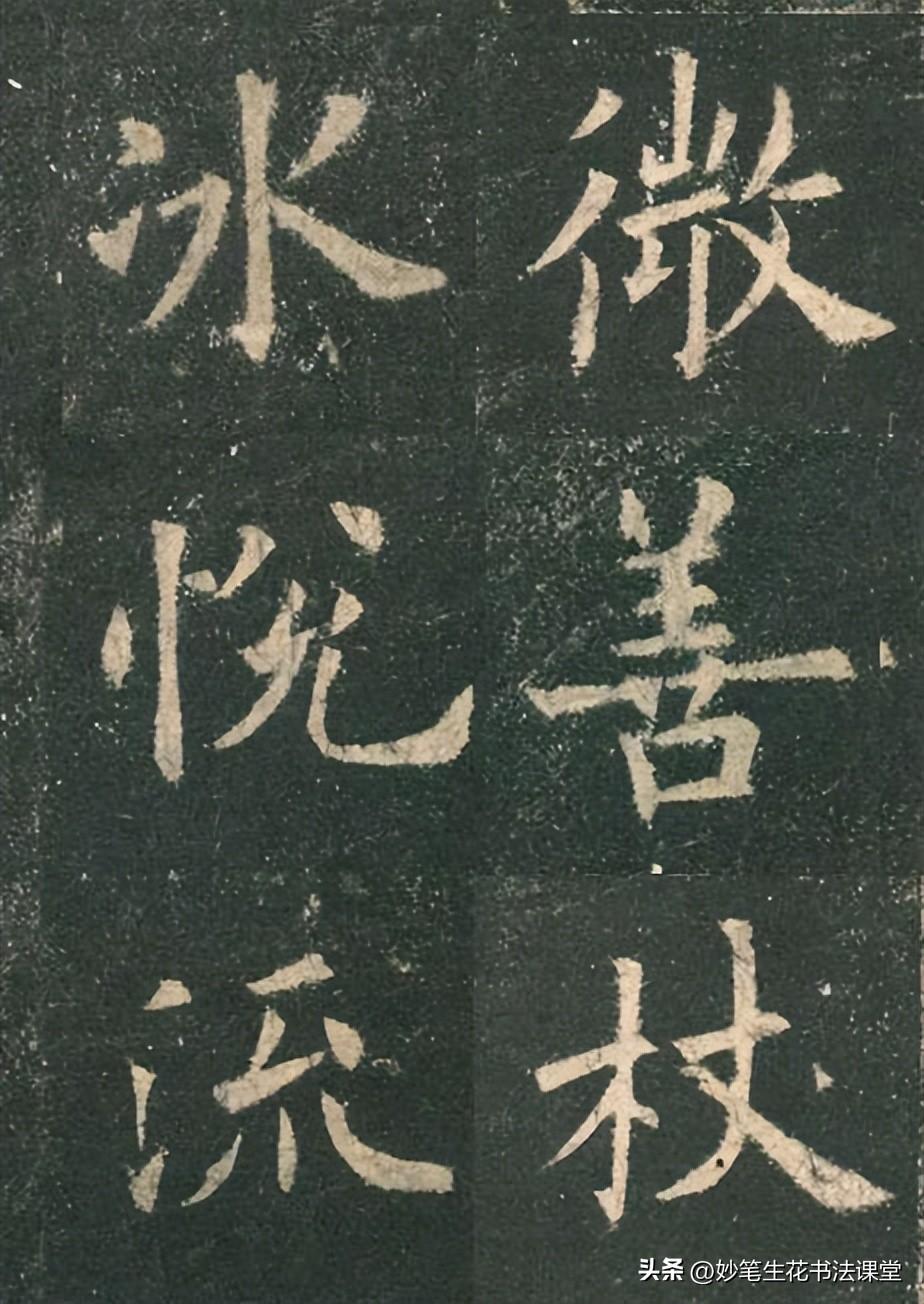 微善杖
冰悦流
头条 @妙笔生花书法课堂